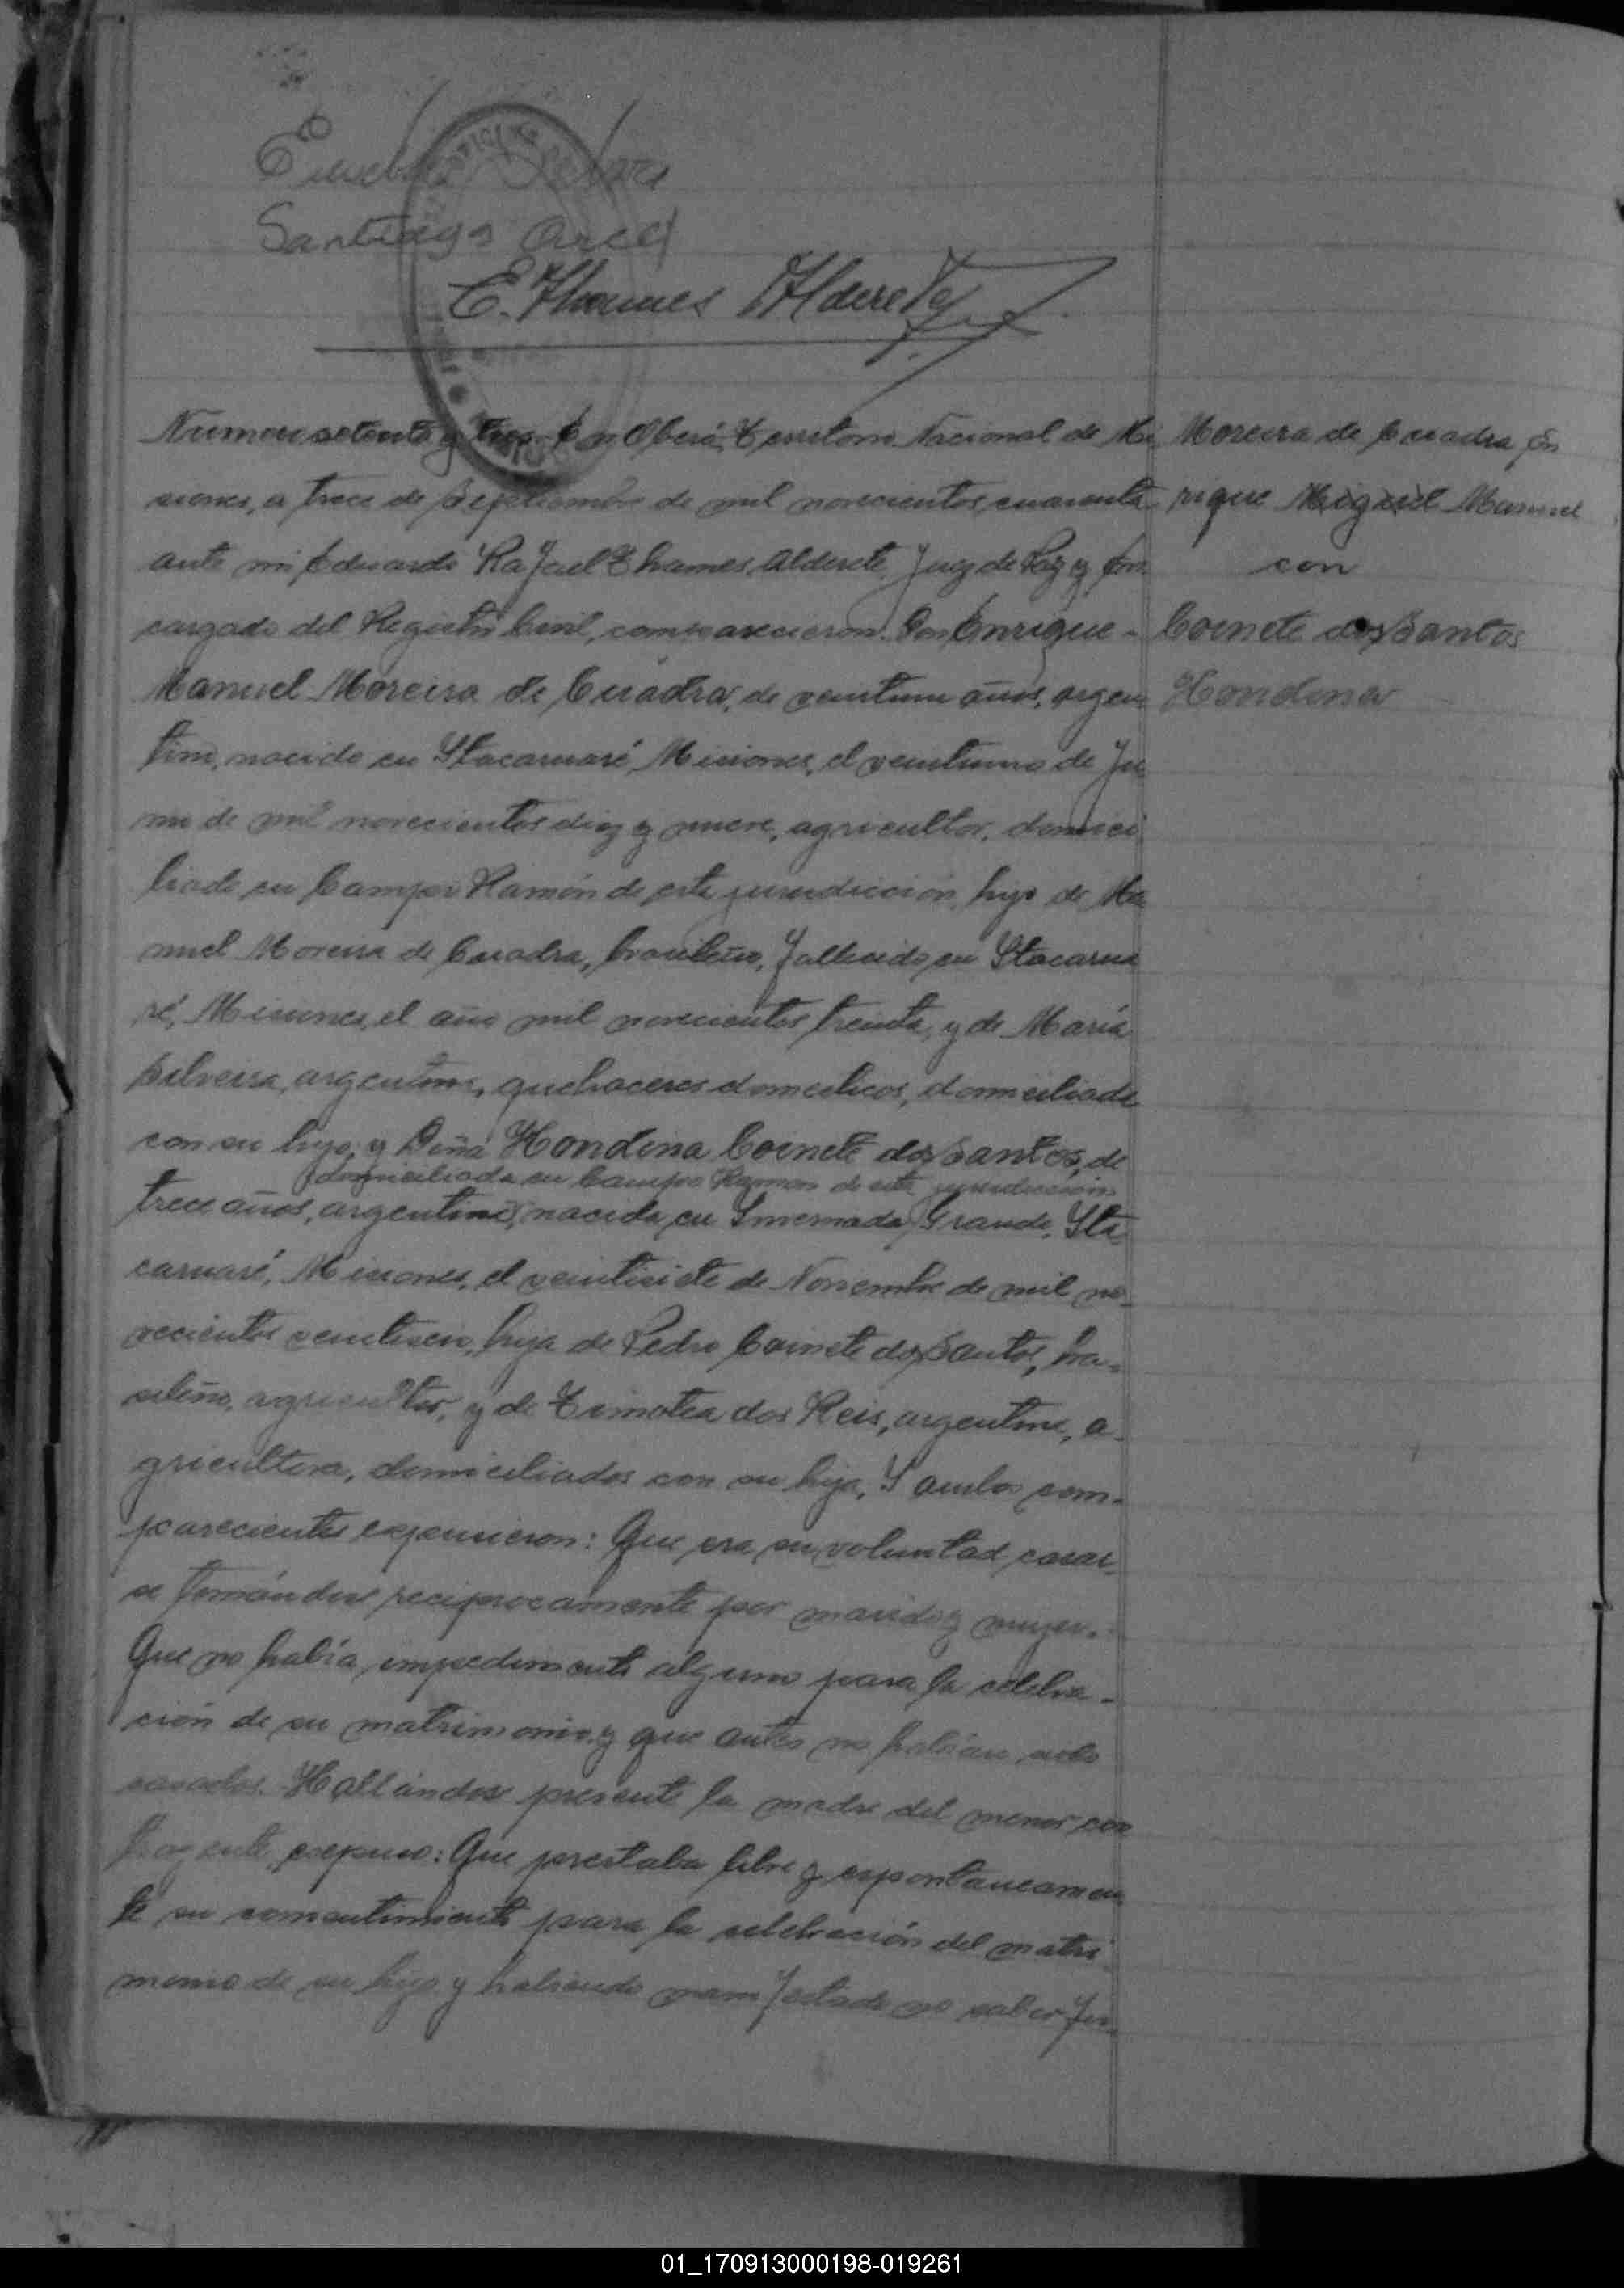 Santiago Arce
E. Thames Alderete
Numero setenta y tres. En Oberá, Territorio Nacional de Mi
siones, a trece de Septiembre de mil novecientos cuarenta
ante mi Eduardo Rafael Thames Alderete, Juez de Paz y En
cargado del Registro Civil, comparecieron: Don Enrique -
Manuel Moreira de Cuadra, de veintiun años, argen
tino, nacido en Itacaruaré, Misiones, el veintiuno de Ju
nio de mil novecientos diez y nueve, agricultor, domici
liado en Campo Ramón de esta jurisdicción, hijo de Ma
nuel Moreira de Cuadra, brasileño, fallecido en Itacarua
ré, Misiones, el año mil novecientos treinta, y de María
Silveira, argentina, quehaceres domesticos, domiciliada
con su hijo; y Doña Hondina Coinete dos Santos, de
domiciliada en Campo Ramon de esta jurisdicción
trece años, argentina, nacida en Invernada Grande, Ita
caruaré, Misiones, el veintisiete de Noviembre de mil no-
vecientos veintiseis, hija de Pedro Coinete dos Santos, bra-
sileño, agricultor, y de Timotea dos Reis, argentina, a-
gricultora, domiciliados con su hija. Y ambos com-
parecientes expusieron: Que era su voluntad casar-
se tomándose reciprocamente por marido y mujer. -
Que no había impedimento alguno para la celebra-
ción de su matrimonio y que antes no habían sido
casados. Hallándose presente la madre del menor con
trayente, expuso: Que prestaba libre y espontaneamen
te su consentimiento para la celebración del matri
monio de su hijo y habiendo manifestado no saber fir-
Moreira de Cuadra, En
rique Miguel Manuel
con
Coinete dos Santos
Hondina
01_170913000198-019261